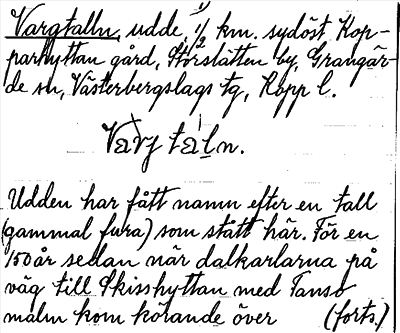 Vargtalln, udde, 1/2 km. sydöst Kop-
parhyttan gård, Storslätten by, Grangär-
de sn, Västerbergslags tg, Kopp l.
Varj taln.
Udden har fått namn efter en tall
(gammal fura) som stått här. För en
150 år sedan när dalkarlarna på
väg till Skisshyttan med Tanso
malm kom körande över (forts.)